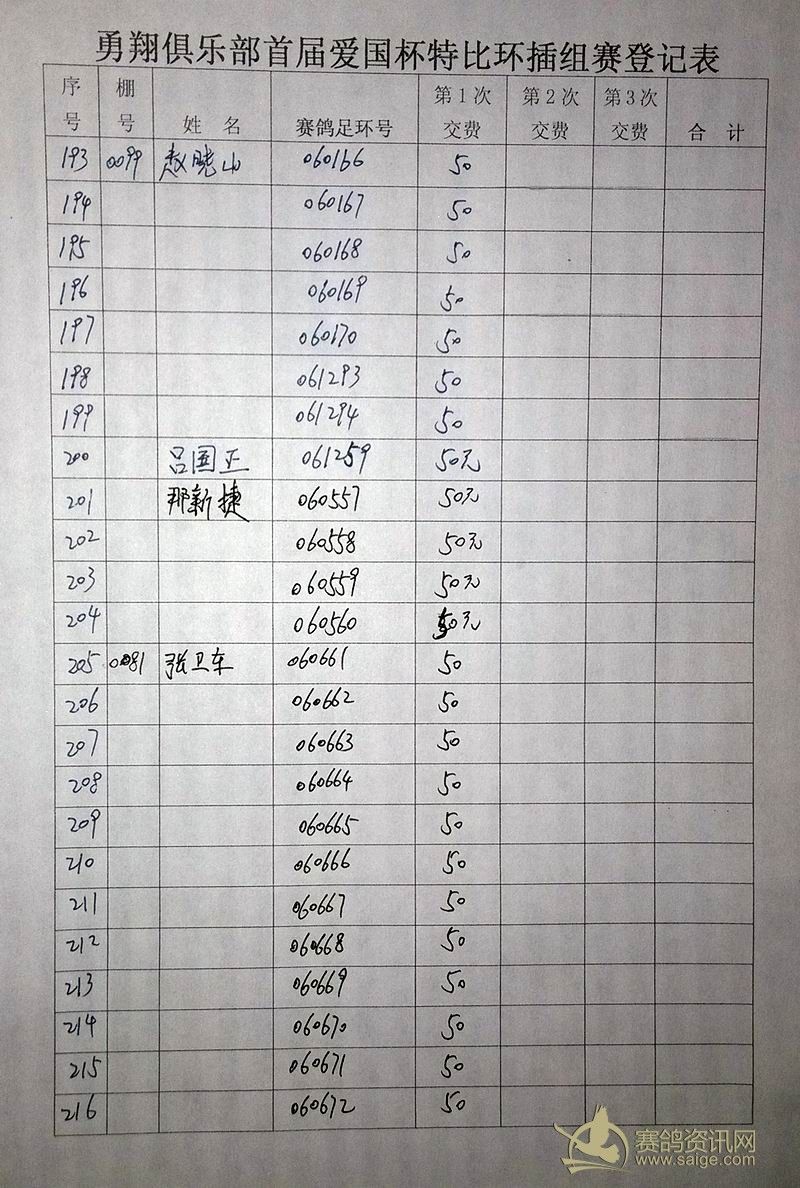 勇翔俱乐部首届爱国杯特比环插组赛登记表
序号 棚号 姓 名 赛鸽足环号 第1次交费 第2次交费 第3次交费 合 计
193 0099 赵晓山 060166 50
194 060167 50
195 060168 50
196 060169 50
197 060170 50
198 061293 50
199 061294 50
200 吕国正 061259 50元
201 那新捷 060557 50元
202 060558 50元
203 060559 50元
204 060560 50元
205 0081 张卫车 060661 50
206 060662 50
207 060663 50
208 060664 50
209 060665 50
210 060666 50
211 060667 50
212 060668 50
213 060669 50
214 060670 50
215 060671 50
216 060672 50
赛鸽资讯网
www.saige.com